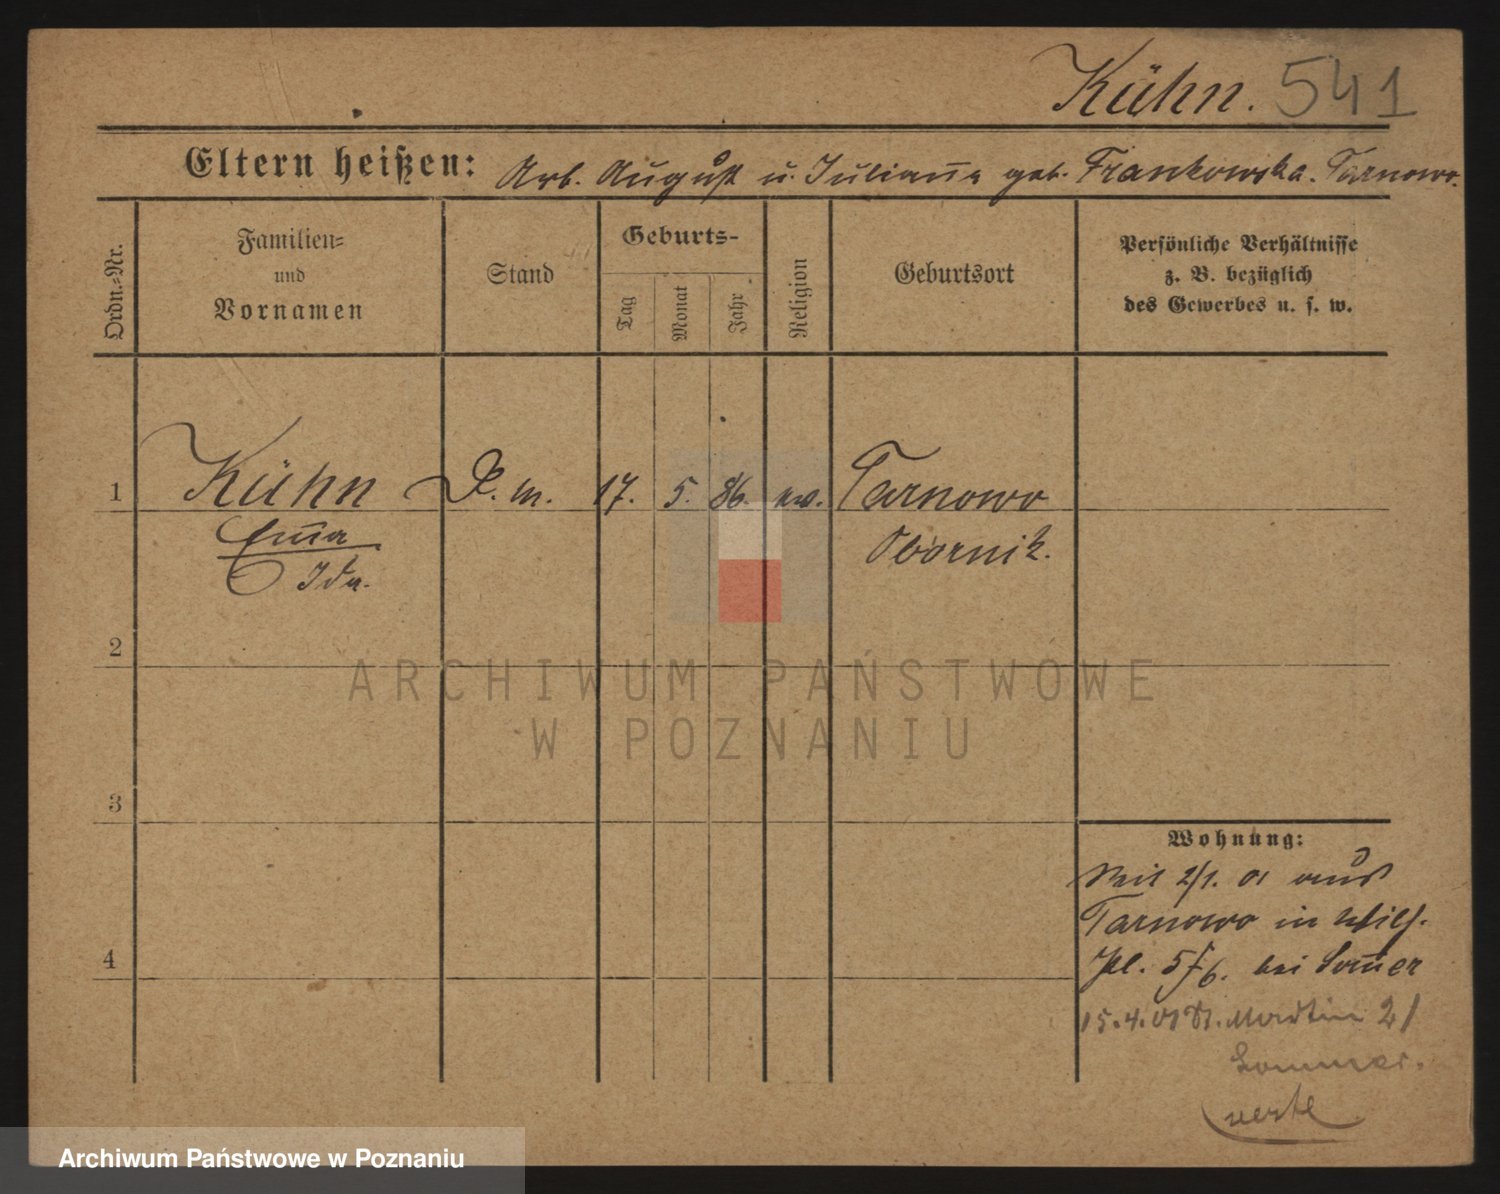 Kühn. 541
Eltern heißen: Arb. August u. Julian̄a geb. Frankowska. Tarnowo.
Ordn.=Nr.
Familien=
und
Vornamen
Stand
Geburts-
Tag
Monat
Jahr
Religion
Geburtsort
Persönliche Verhältnisse
z. B. bezüglich
des Gewerbes u. s. w.
1 Kühn D. m. 17. 5. 86. ev. Tarnowo
Em̄a Obornik.
Ida.
2
ARCHIWUM PAŃSTWOWE
W POZNANIU
3
Wohnung:
Seit 2/1. 01 aus
Tarnowo in Wilh.
4
Pl. 5/6. bei Som̄er
15.4.01 St. Martin 21
Sommer.
verte
Archiwum Państwowe w Poznaniu